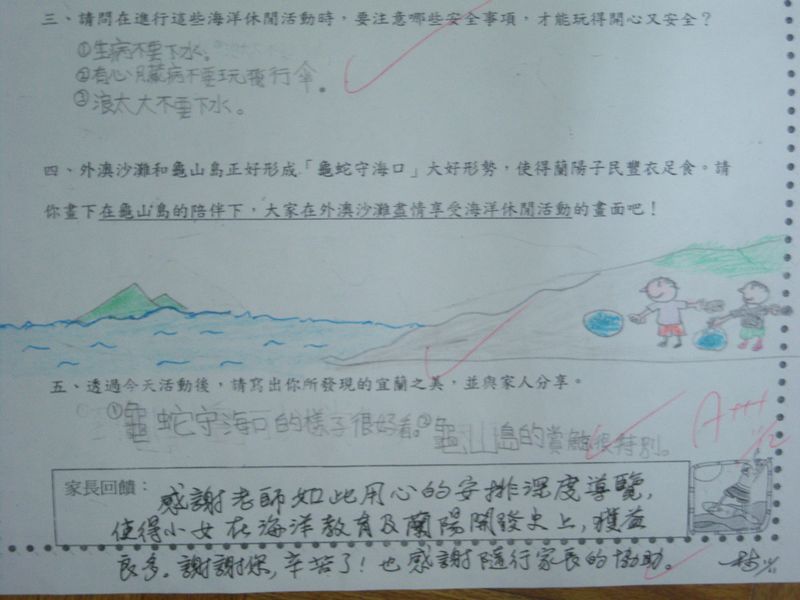 三、請問在進行這些海洋休閒活動時，要注意哪些安全事項，才能玩得開心又安全？
①生病不要下水。
②有心臟病不要玩飛行傘。
③浪太大不要下水。
四、外澳沙灘和龜山島正好形成「龜蛇守海口」大好形勢，使得蘭陽子民豐衣足食。請
你畫下在龜山島的陪伴下，大家在外澳沙灘盡情享受海洋休閒活動的畫面吧！
五、透過今天活動後，請寫出你所發現的宜蘭之美，並與家人分享。
①龜蛇守海口的樣子很好看。②龜山島的賞鯨很特別。
A+++
家長回饋：感謝老師如此用心的安排深度導覽，
使得小女在海洋教育及蘭陽開發史上，獲益
良多。謝謝您，辛苦了！也感謝隨行家長的協助。